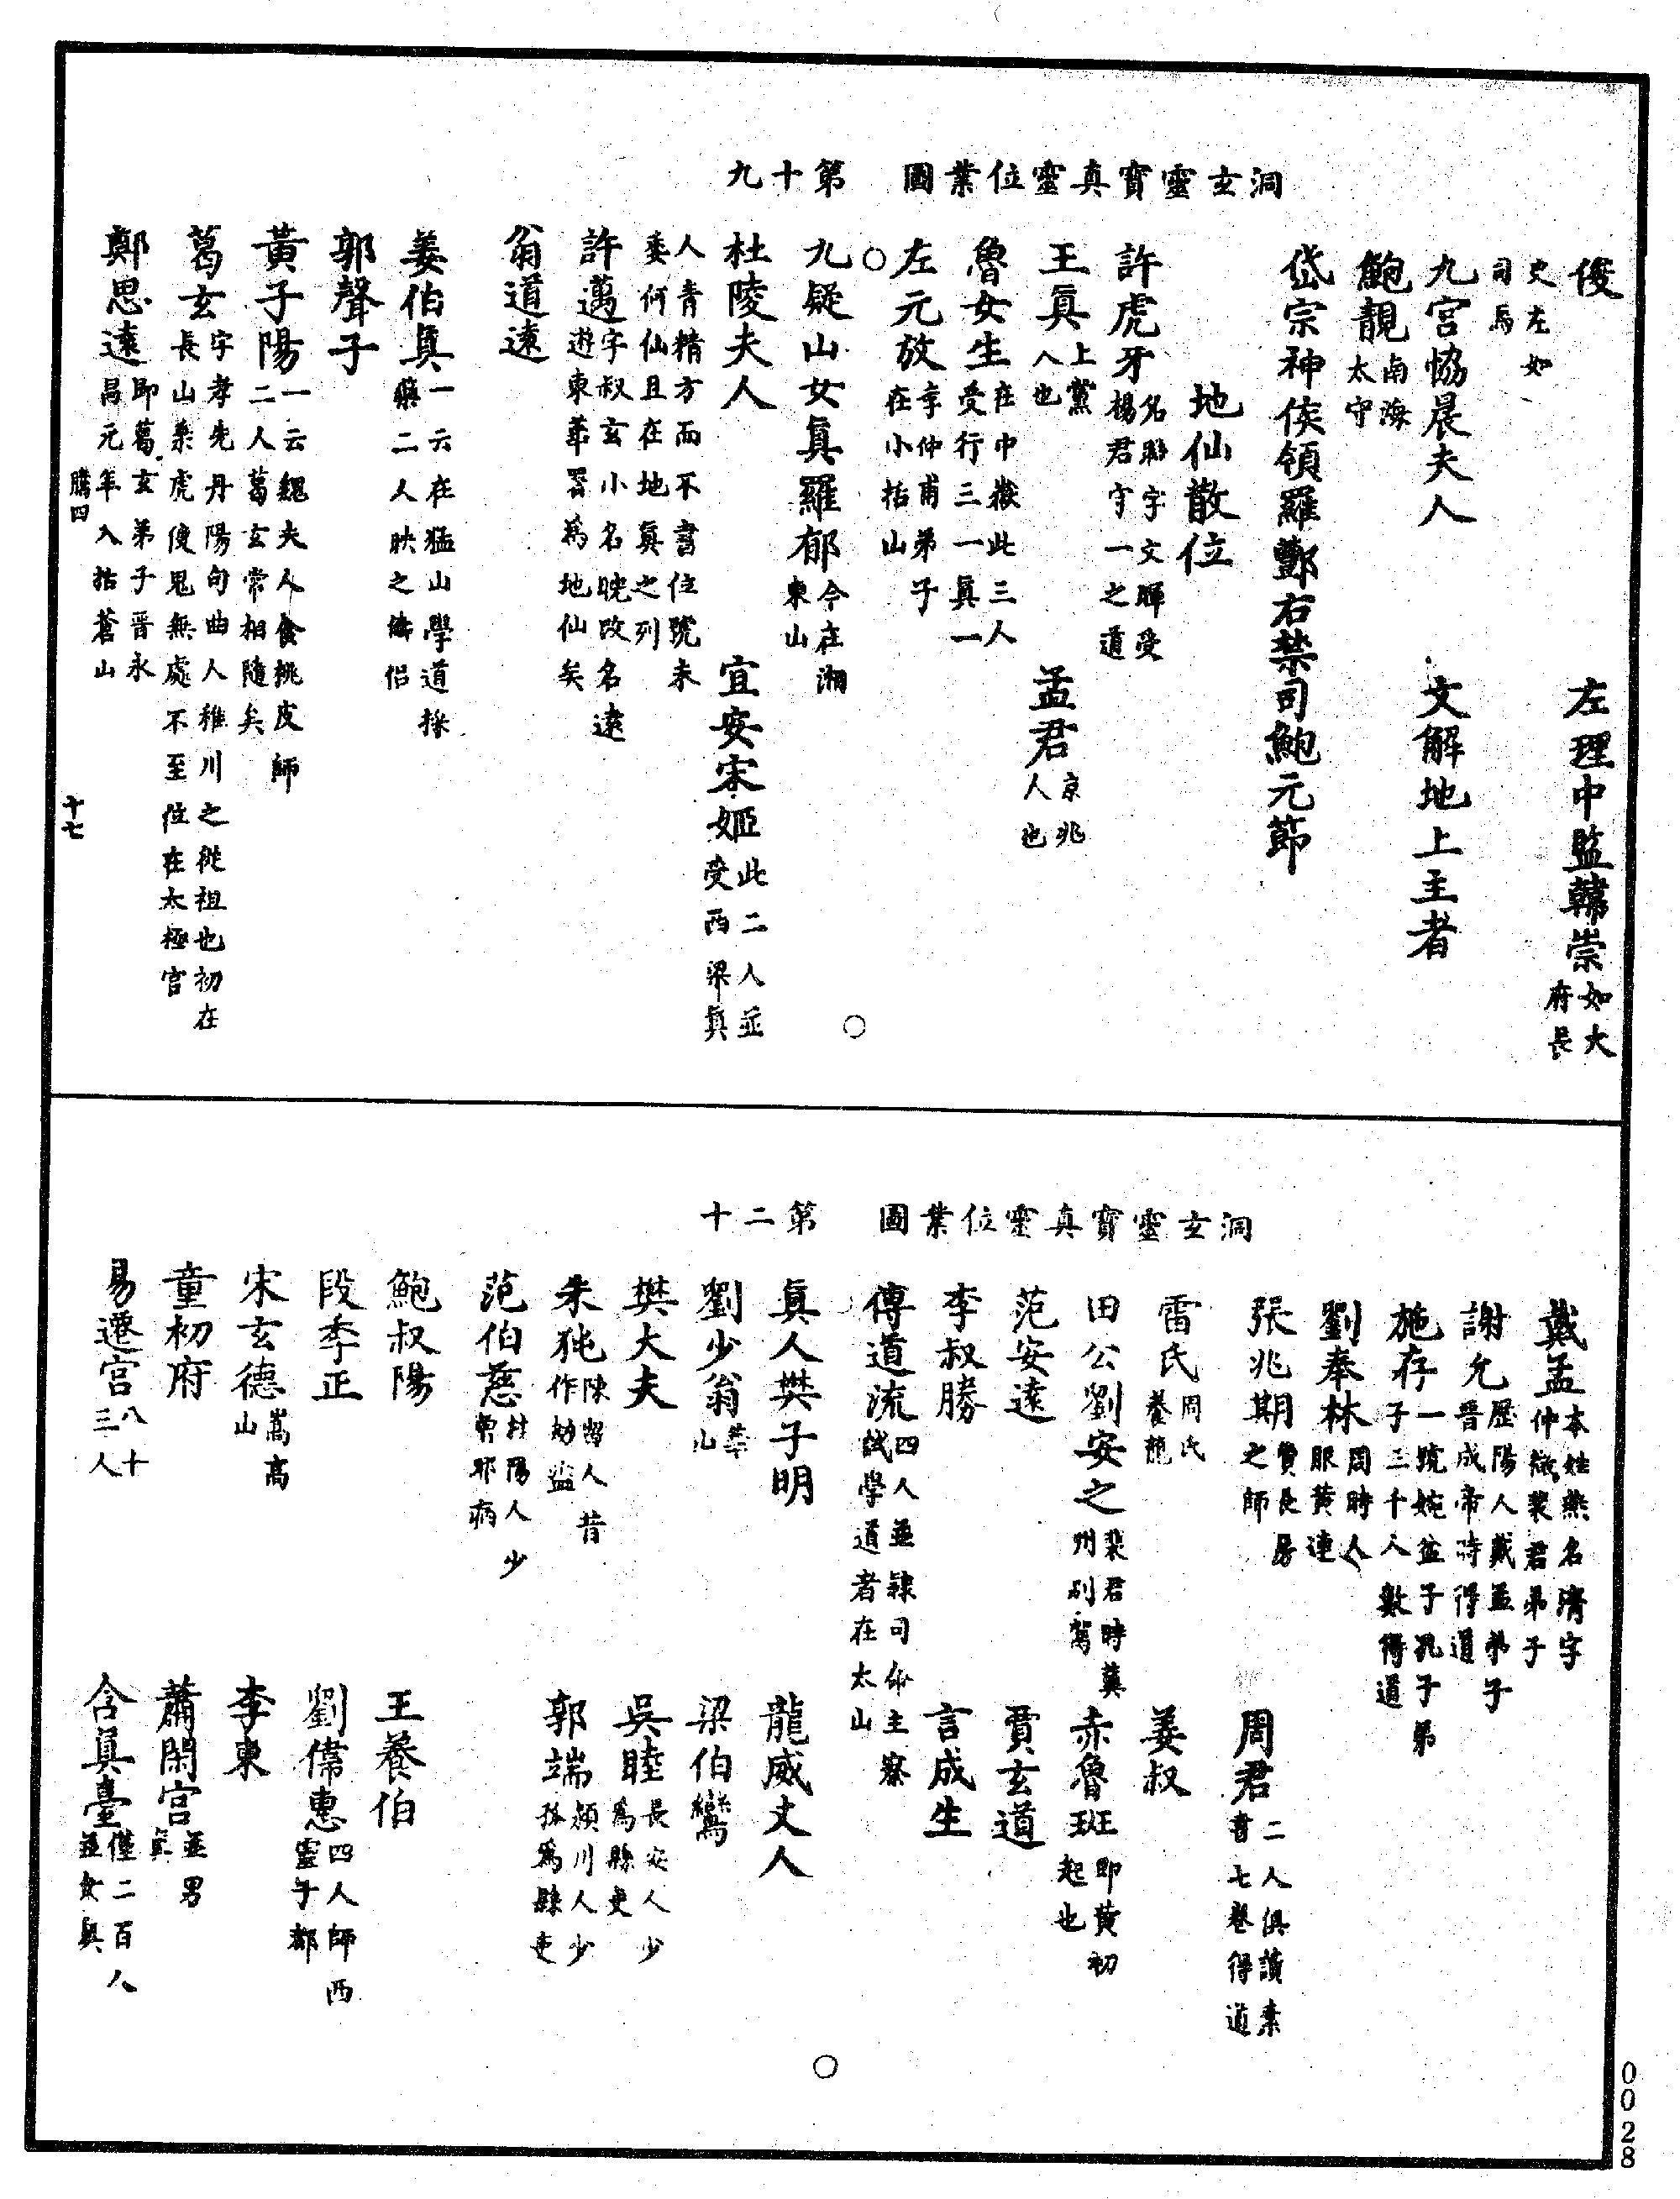 洞玄靈寶真靈位業圖　第十九
俊　左理中監韓崇如大府長
史左如司馬
九宮恊晨夫人　文解地上主者
鮑靚南海太守
岱宗神侯領羅酆右禁司鮑元節
地仙散位
許虎牙名聯字文暉受楊君守一之道
王真上黨人也　孟君京兆人也
魯女生在中嶽此三人受行三一真一
左元放李仲甫弟子在小括山
九疑山女真羅郁今在湘東山
杜陵夫人　宜安宋姬此二人並受西梁真
人青精方而不書位號未委何仙且在地真之列
許邁字叔玄小名映改名遠遊東華署為地仙矣
翁道遠
姜伯真一云在猛山學道採藥二人映之儔侶
郭聲子
黃子陽一云魏夫人食桃皮師二人葛玄常相隨矣
葛玄字孝先丹陽句曲人稚川之從祖也初在長山乘虎使鬼無處不至位在太極宮
鄭思遠即葛玄弟子晉永昌元年入括蒼山
騰四　十七
洞玄靈寶真靈位業圖　第二十
戴孟本姓燕名濟字仲微裴君弟子
謝允歷陽人戴孟弟子晉成帝時得道
施存一號婉盆子孔子弟子三千人數得道
劉奉林周時人服黃連
張兆期費長房之師　周君二人俱讀素書七卷得道
雷氏周氏養龍　姜叔
田公劉安之裴君時冀州別駕　赤魯班即黃初起也
范安遠　賈玄道
李叔勝　言成生
傅道流四人並隸司命主察試學道者在太山
真人樊子明　龍威丈人
劉少翁華山　梁伯鸞
樊大夫　吳睦長安人少為縣吏
朱㹠陳留人昔作劫盜　郭端潁川人少孤為縣吏
范伯慈桂陽人少嘗邪病
鮑叔陽　王養伯
段季正　劉偉惠四人師西靈子都
宋玄德嵩高山　李東
童初府　蕭閑宮並男真
易遷宮八十三人　含真臺僅二百人並女真
0028